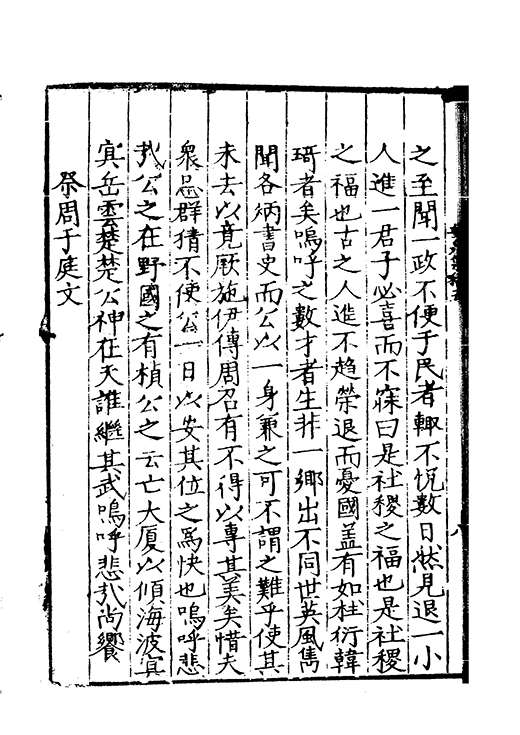 之至聞一政不便于民者輙不悅數日然見退一小
人進一君子必喜而不寐曰是社稷之福也是社稷
之福也古之人進不趨榮退而憂國盖有如杜衍韓
琦者矣嗚呼之數才者生非一鄉出不同世英風雋
聞各炳書史而公以一身兼之可不謂之難乎使其
未去以竟厥施伊傳周召有不得以專其美矣惜夫
衆忌群猜不使公一日以安其位之爲快也嗚呼悲
哉公之在野國之有楨公之云亡大厦以傾海波寘
寘岳雲楚楚公神在天誰繼其武嗚呼悲哉尚饗
祭周于庭文
八